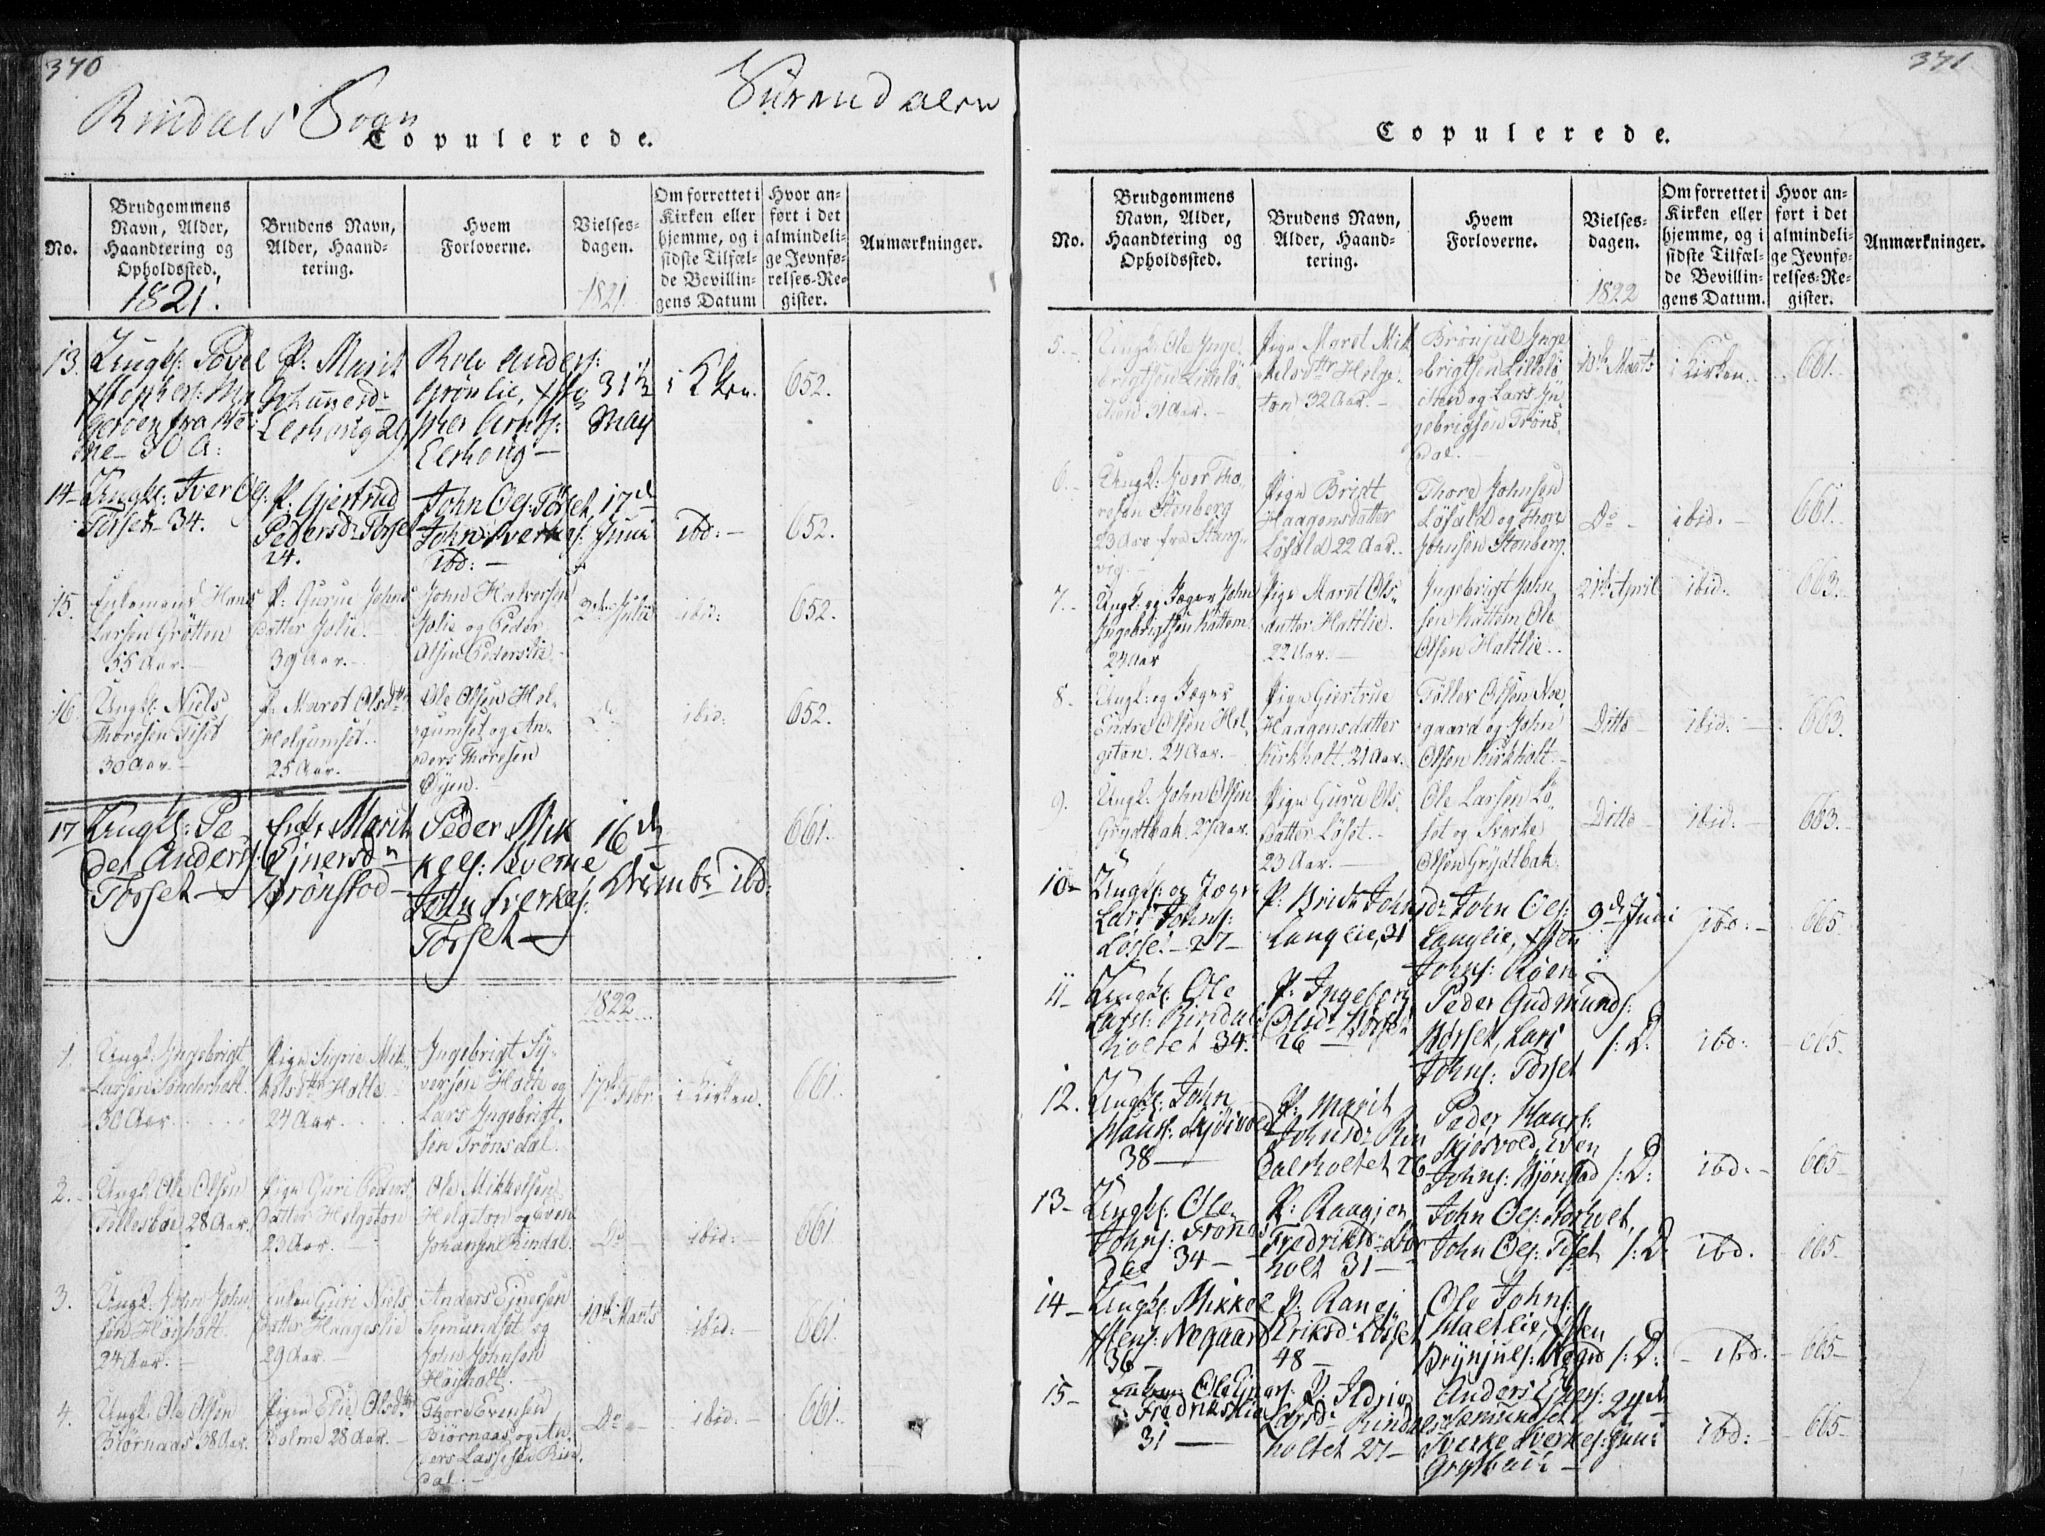 370
Rindals Sogn
Surendalen
Copulerede.
No.
Brudgommens
Navn, Alder,
Haandtering og
Opholdssted.
1821.
Brudens Navn,
Alder, Haand-
tering.
Hvem
Forloverne.
Vielses-
dagen.
1821
Om forrettet i
Kirken eller
hjemme, og i
sidste Tilfæl-
de Bevillin-
gens Datum
Hvor an-
ført i det
almindeli-
ge Jevnfø-
relses-Re-
gister.
Anmærkninger.
13.
Ungk: Povel
30 A:
P. Marit
Roln Anders:
Grønlie,
31te
May
i Kken.
652.
14-
Ungk: Iver Ols:
Torset 34.
P. Giertrud
Pedersd: Torset
24.
John Ols: Torset,
John Sverkes:
ibd: -
17de
Junii
ibd: -
652.
15.
Enkemand Hans
Larsen Grötten
55 Aar. -
P. Gurue Johns
datter Jolie. -
39 Aar. -
John Halvorsen
Jolie og Peder
Olsen Pederslie -
2den Julii
ibid:
652.
16
Ungk: Niels
Thoresen Tiset
30 Aar. -
P. Maret Olsdtr
Helgumset.
25 Aar.
Ole Olsen Hel-
gumset og An-
ders Thoresen
Øyen. -
Do
ibid:
652.
17
Ungk: Pe-
der Anders:
Torset -
Enke Marit
Ejnersdr
Brønstad -
Peder Mik
kels: Bverne
John Sverkes:
Torset -
16de
Decembr
ibd:
661.
1822
1.
Ungk: Ingebrigt
Larsen Sønderholt.
30 Aar.
Pige Sigrie Mik-
kelsdtr Holte
24 Aar.
Ingebrigt Sy-
versen Holte og
Lars Ingebrigt.
sen Trønsdal.
17de Febr.
i Kirken.
661.
2.
Ungk. Ole Olsen
Tellesböe 28 Aar.
Pige Guri Peders
datter Helgeton
23 Aar. -
Ole Mikkelsen
Helgeton og Even
Johansen Rindal.
Do
ibid: -
661.
3.
Ungk. John John-
sen Høyholt.
24 Aar. -
Enken Guri Niels
datter Haagenslie
29 Aar. -
Anders Ejnersen
Semundset og
John Johnsen
Høyholt. -
10de Marts
ibid: -
661.
4.
Ungk. Ole Olsen
Biørnaas 38 Aar.
Pigen Elie Olsdtr
Bolme 28 Aar. -
Thore Evensen
Biørnaas og An-
ders Lassesen Rin-
dal. -
Do -
ibid: -
661.
371
Copulerede.
No.
Brudgommens
Navn, Alder,
Haandtering og
Opholdssted.
Brudens Navn,
Alder, Haand-
tering.
Hvem
Forloverne.
Vielses-
dagen.
1822
Om forrettet i
Kirken eller
hjemme, og i
sidste Tilfæl-
de Bevillin-
gens Datum.
Hvor an-
ført i det
almindeli-
ge Jevnfø-
relses-Re-
gister.
Anmærkninger.
5. -
Ungk: Ole Inge-
brigtsen Lillelø-
31 Aar. -
Pige Maret Mik
kelsdtr Helge-
ton 32 Aar. -
Brönjul Inge
brigtsen Lillelö
og Lars In-
gebrigtsen Tröns
dal. -
10de Marts
i Kirken.
661.
6. -
Ungk: Iver Tho-
resen Stenberg
23 Aar fra Stang-
vig. -
Pige Bridt
Haagensdatter
Löfald 22 Aar.
Thore Johnsen
Löfald og Thore
Johnsen Stenberg.
Do -
ibid. -
661.
7. -
Ungk: og Jæger John
Ingebrigtsen Kattem.
24 Aar
Pige Maret Ols-
datter Hattlie.
22 Aar. -
Ingebrigt John
sen Kattem Ole
Olsen Hattlie.
21de April
ibid.
663.
8.
Ungk: og Jæger
Endre Olsen Hel-
geton. 24 Aar. -
Pige Giertrue
Haagensdatter
Kirkholt. 21 Aar.
Töller Olsen Noe-
gaard og John
Olsen Kirkholt. -
Ditto -
ibid: -
663.
9.
Ungk: John Olsen
Grydtbak. 27 Aar.
Pige Guru Ols-
datter Löset. -
23 Aar. -
Ole Larsen Lö-
set og Sverke
Olsen Grydtbak.
Ditto -
ibid: -
663. -
10-
Ungk: og Jæger
Lars Johns:
Løsset - 27 -
P. Brit Johnsdr
Langlie, 31
John Ols:
Langlie,
Johns: Røen
9de Juni
ibd: -
665
11-
Ungk: Ole
Lars: Rindals
holtet 34.
P. Ingeborg
Olsdr Børset
26 -
Peder Gudmunds:
Børset, Lars
Johns: Torset
/: D:
ibd:
665.
12.
Ungk: John
Hans: Skjøsvold
38 -
P. Marit
Johnsdr Rin
dalsholtet 26
Peder Hans:
Skjøsvold, Even
Johns: Bjønstad
/: D:
ibd: -
665 -
13-
Ungk: Ole
Johns: Trøns
dal 34 -
P. Raagien
Fredriksdr Stor
holt 31 -
John Ols: Storholt,
John Ols: Tiset
/: D:
ibd.
665.
14-
Ungk: Mikkel
Stens: Nogaard
36 -
P. Ranej
Eriksdr Løsset
48 -
Ole Johns:
Brynjuls: Nogrd
/: D:
- ibd. -
665 -
15 -
Enkem: Ole Ejners:
Fredrikslie
31 -
P. Ildrie
Larsdr Rindals
holtet 27 -
Anders Ejners:
Semundset
Sverke Sverkes:
Grytbak -
24de
Juni
ibd:
665